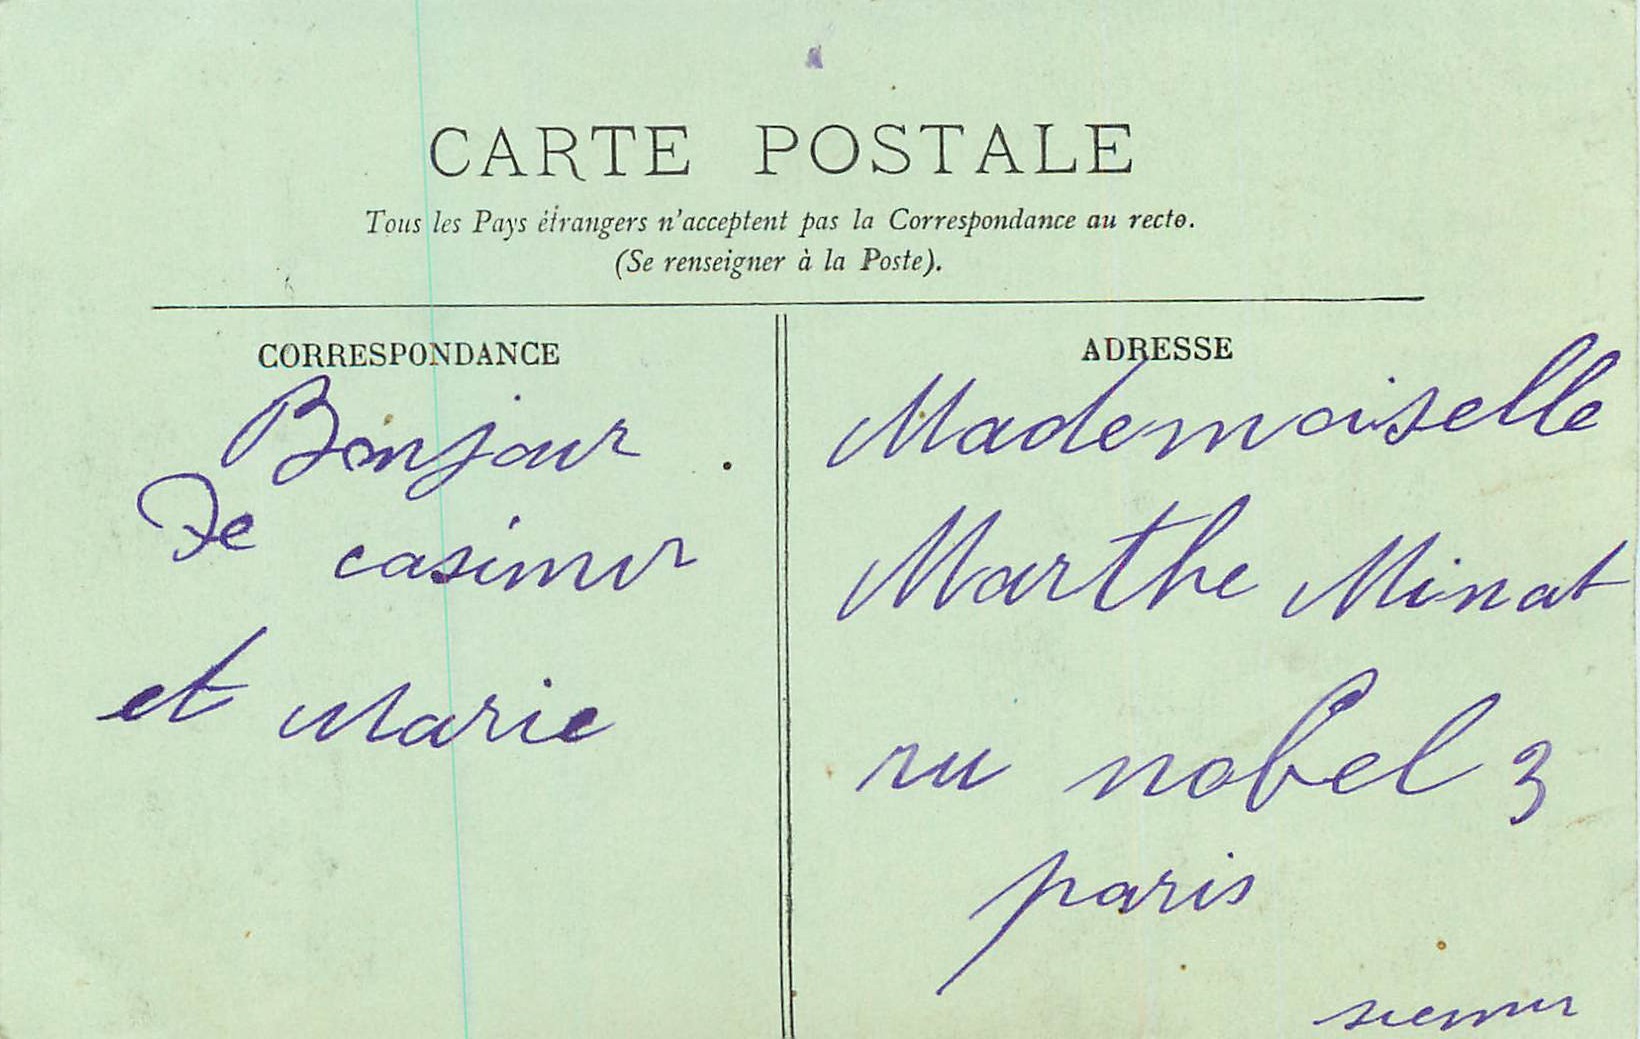 CARTE POSTALE
Tous les Pays étrangers n'acceptent pas la Correspondance au recto.
(Se renseigner à la Poste).
CORRESPONDANCE
Bonjour
De casimir
et Marie
ADRESSE
Mademoiselle
Marthe Minat
ru nobel 3
paris